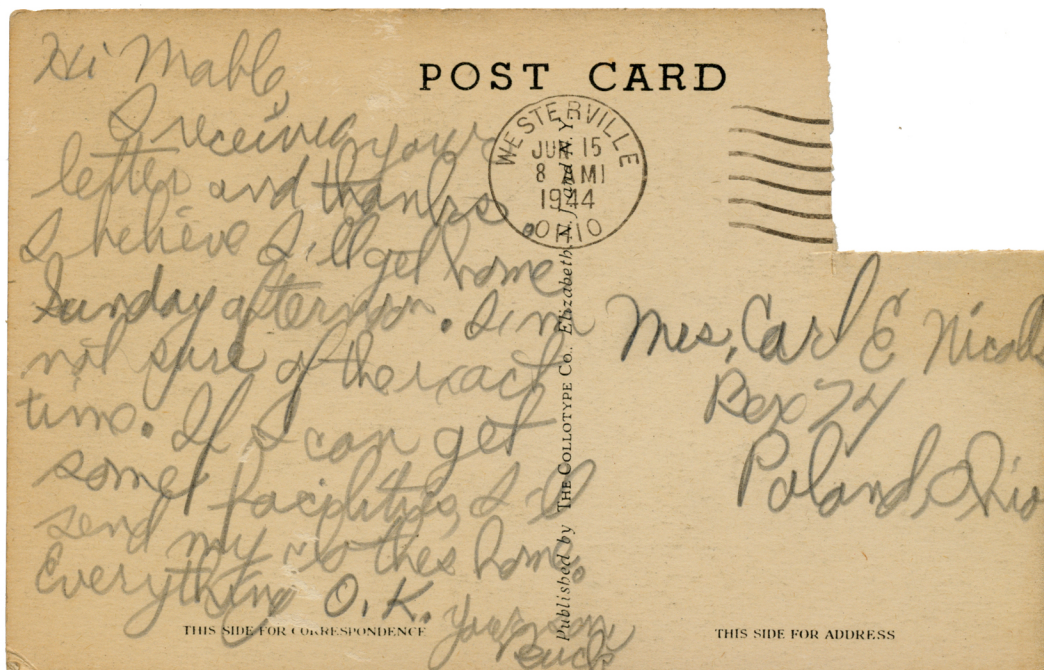 POST CARD
Hi Mable,
I received your
letter and thanks.
I believe I'll get home
Sunday afternoon. I'm
not sure of the exact
time. If I can get
some facilities I'll
send my clothes home.
Everything O.K.
Your son
Buck
WESTERVILLE
JUN 15
8 AM
1944
OHIO
Published by THE COLLOTYPE Co., Elizabeth, N. J. and N. Y.
Mrs. Carl E Nicolls
Box 74
Poland, Ohio
THIS SIDE FOR CORRESPONDENCE
THIS SIDE FOR ADDRESS